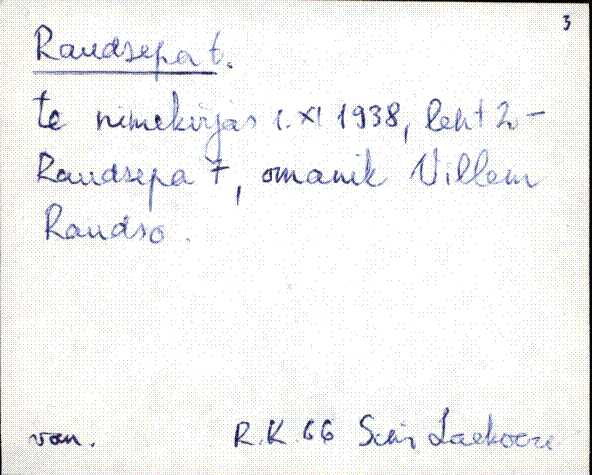 3
Raudsepa t.
te nimekirjas 1. XI 1938, leht 2 -
Raudsepa T, omanik Villem
Raudso.
van. R.K. 66